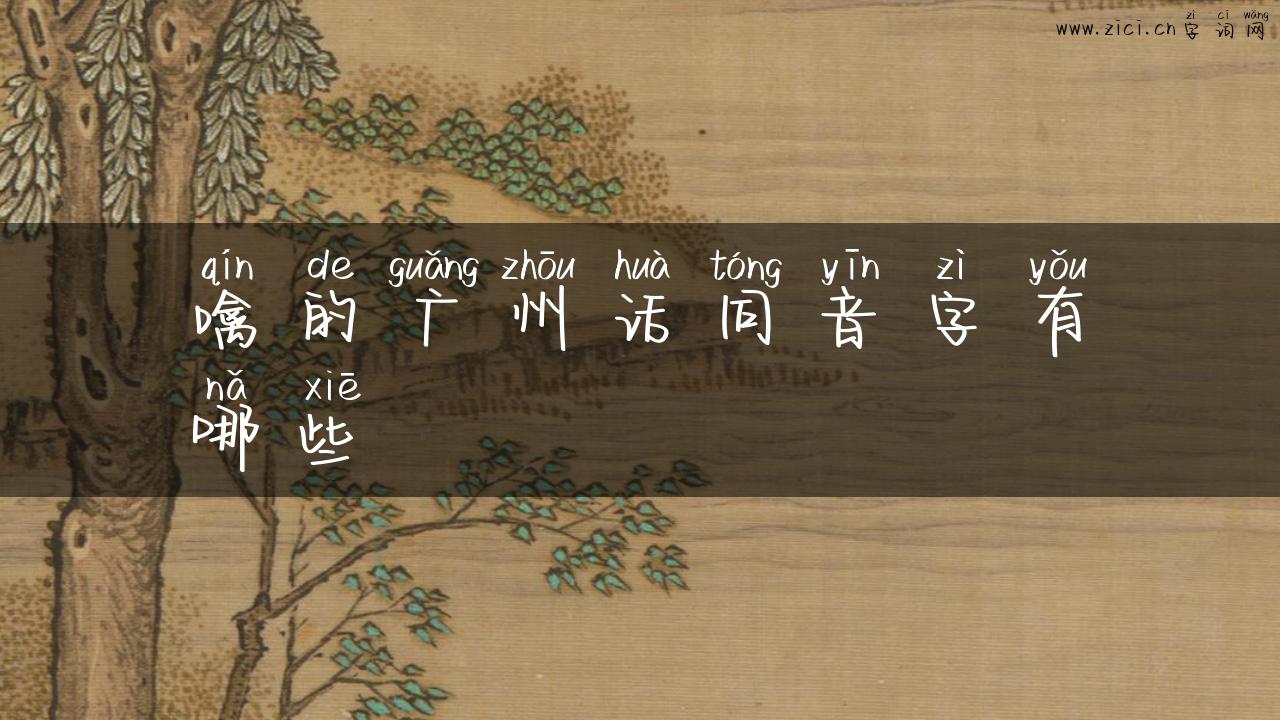 zì cí wǎng
www.zici.cn 字词网
qín de guǎng zhōu huà tóng yīn zì yǒu
噙的广州话同音字有
nǎ xiē
哪些